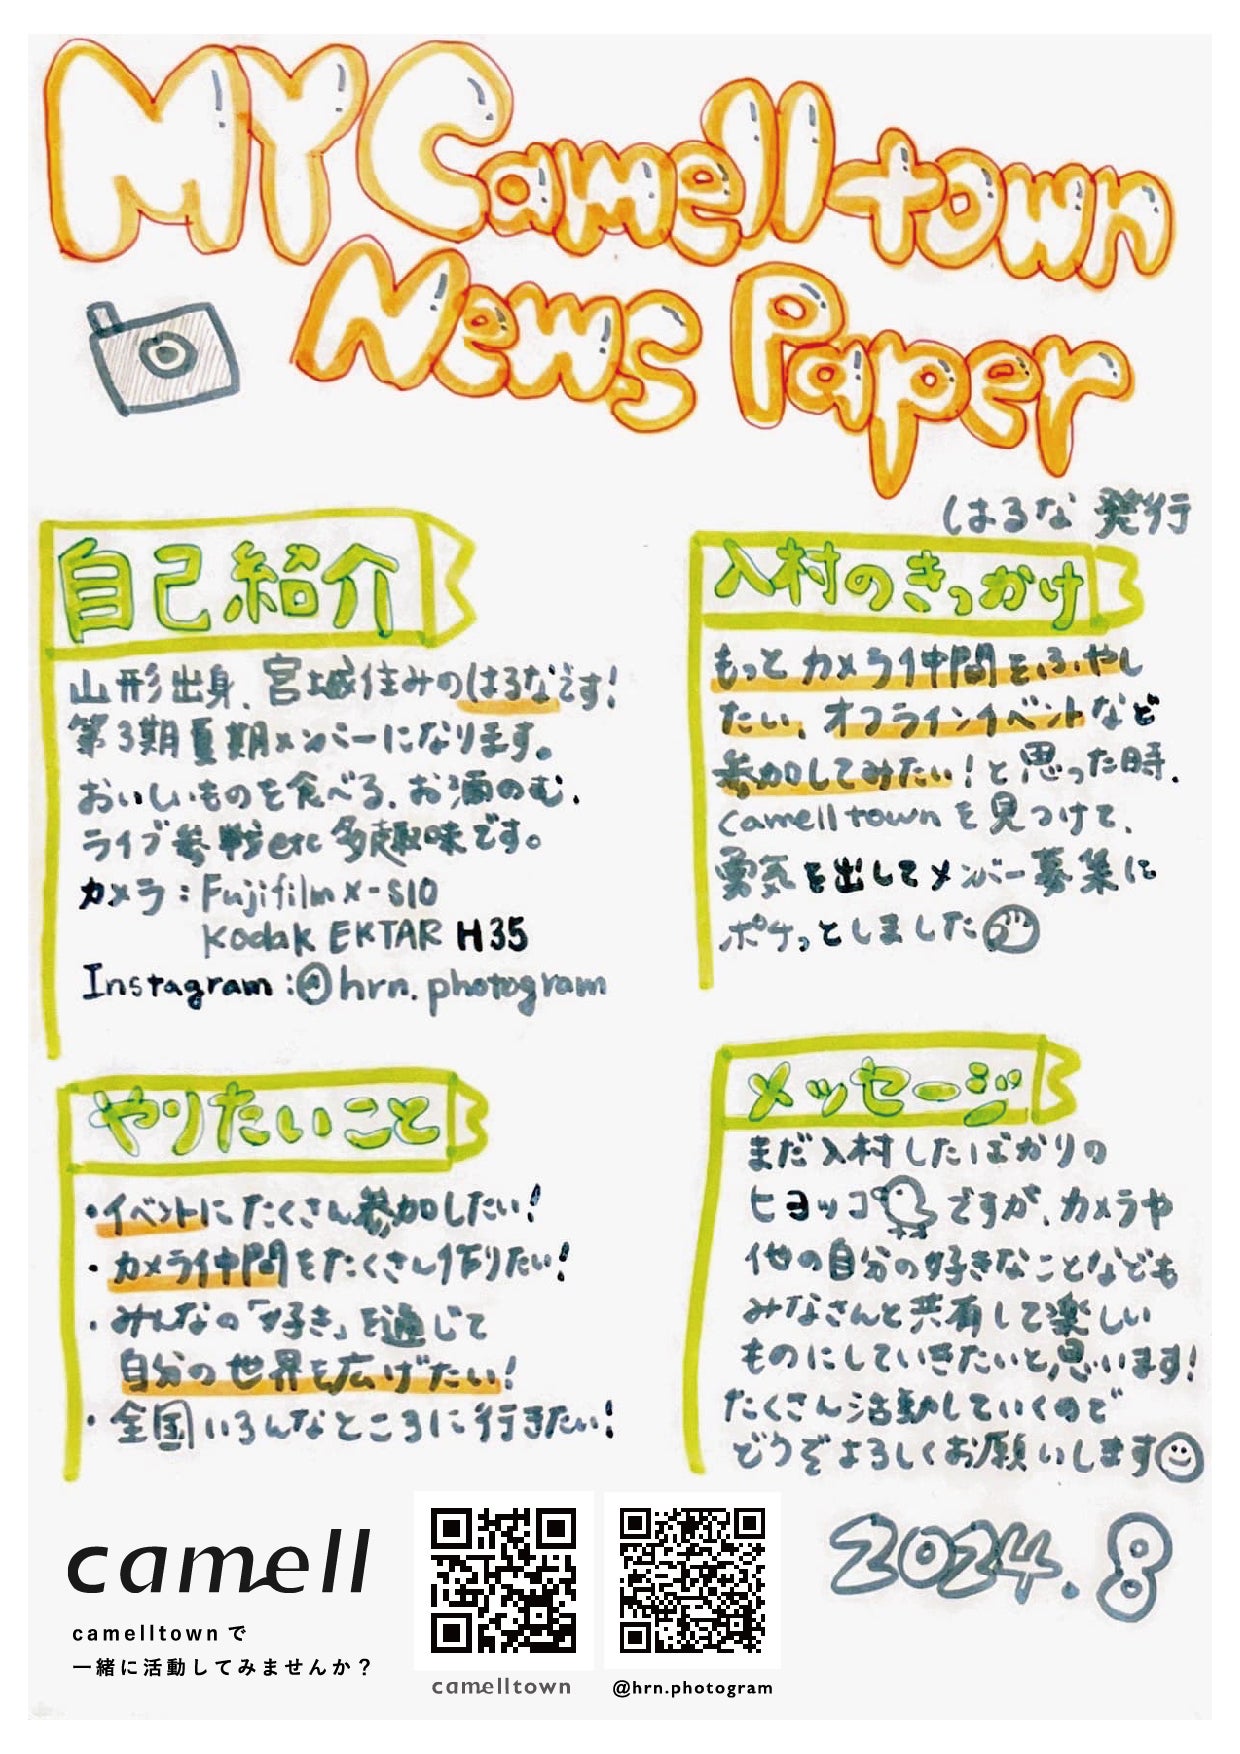 MY Camelltown
News Paper
はるな 発行
自己紹介
山形出身、宮城住みのはるなです!
第3期夏期メンバーになります。
おいしいものを食べる、お酒のむ、
ライブ参戦etc多趣味です。
カメラ:Fujifilm X-S10
Kodak EKTAR H35
Instagram:@hrn.photogram
入村のきっかけ
もっとカメラ仲間をふやし
たい、オフラインイベントなど
参加してみたい!と思った時、
camelltownを見つけて、
勇気を出してメンバー募集に
ポチっとしました
やりたいこと
・イベントにたくさん参加したい!
・カメラ仲間をたくさん作りたい!
・みんなの「好き」を通じて
自分の世界を広げたい!
・全国いろんなところに行きたい!
メッセージ
まだ入村したばかりの
ヒヨッコですが、カメラや
他の自分の好きなことなども
みなさんと共有して楽しい
ものにしていきたいと思います!
たくさん活動していくので
どうぞよろしくお願いします
2024.8
camell
camelltownで
一緒に活動してみませんか?
camelltown
@hrn.photogram